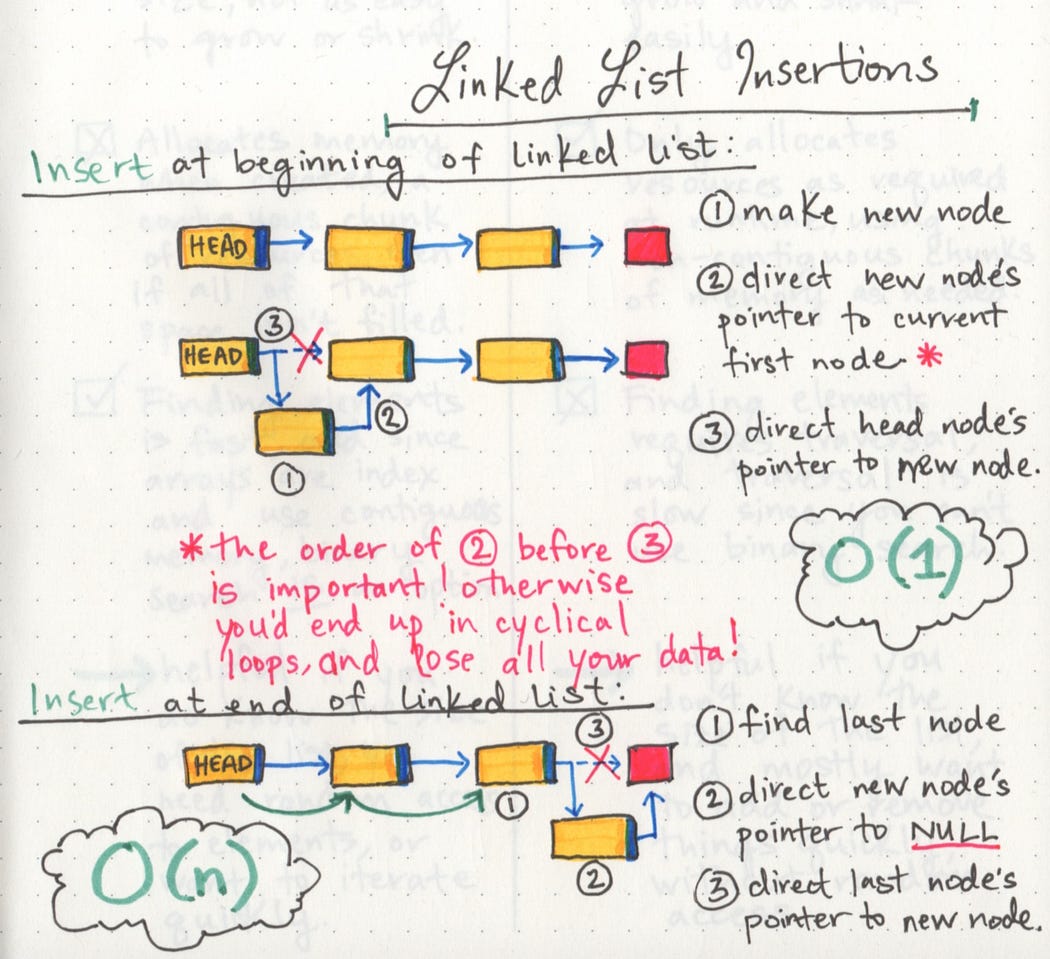 Linked List Insertions
Insert at beginning of linked list:
① make new node
HEAD
② direct new node's
pointer to current
first node *
③
HEAD
②
①
③ direct head node's
pointer to new node.
O(1)
* the order of ② before ③
is important otherwise
you'd end up in cyclical
loops, and lose all your data!
Insert at end of linked list:
① find last node
③
HEAD
①
② direct new node's
pointer to NULL
②
O(n)
③ direct last node's
pointer to new node.